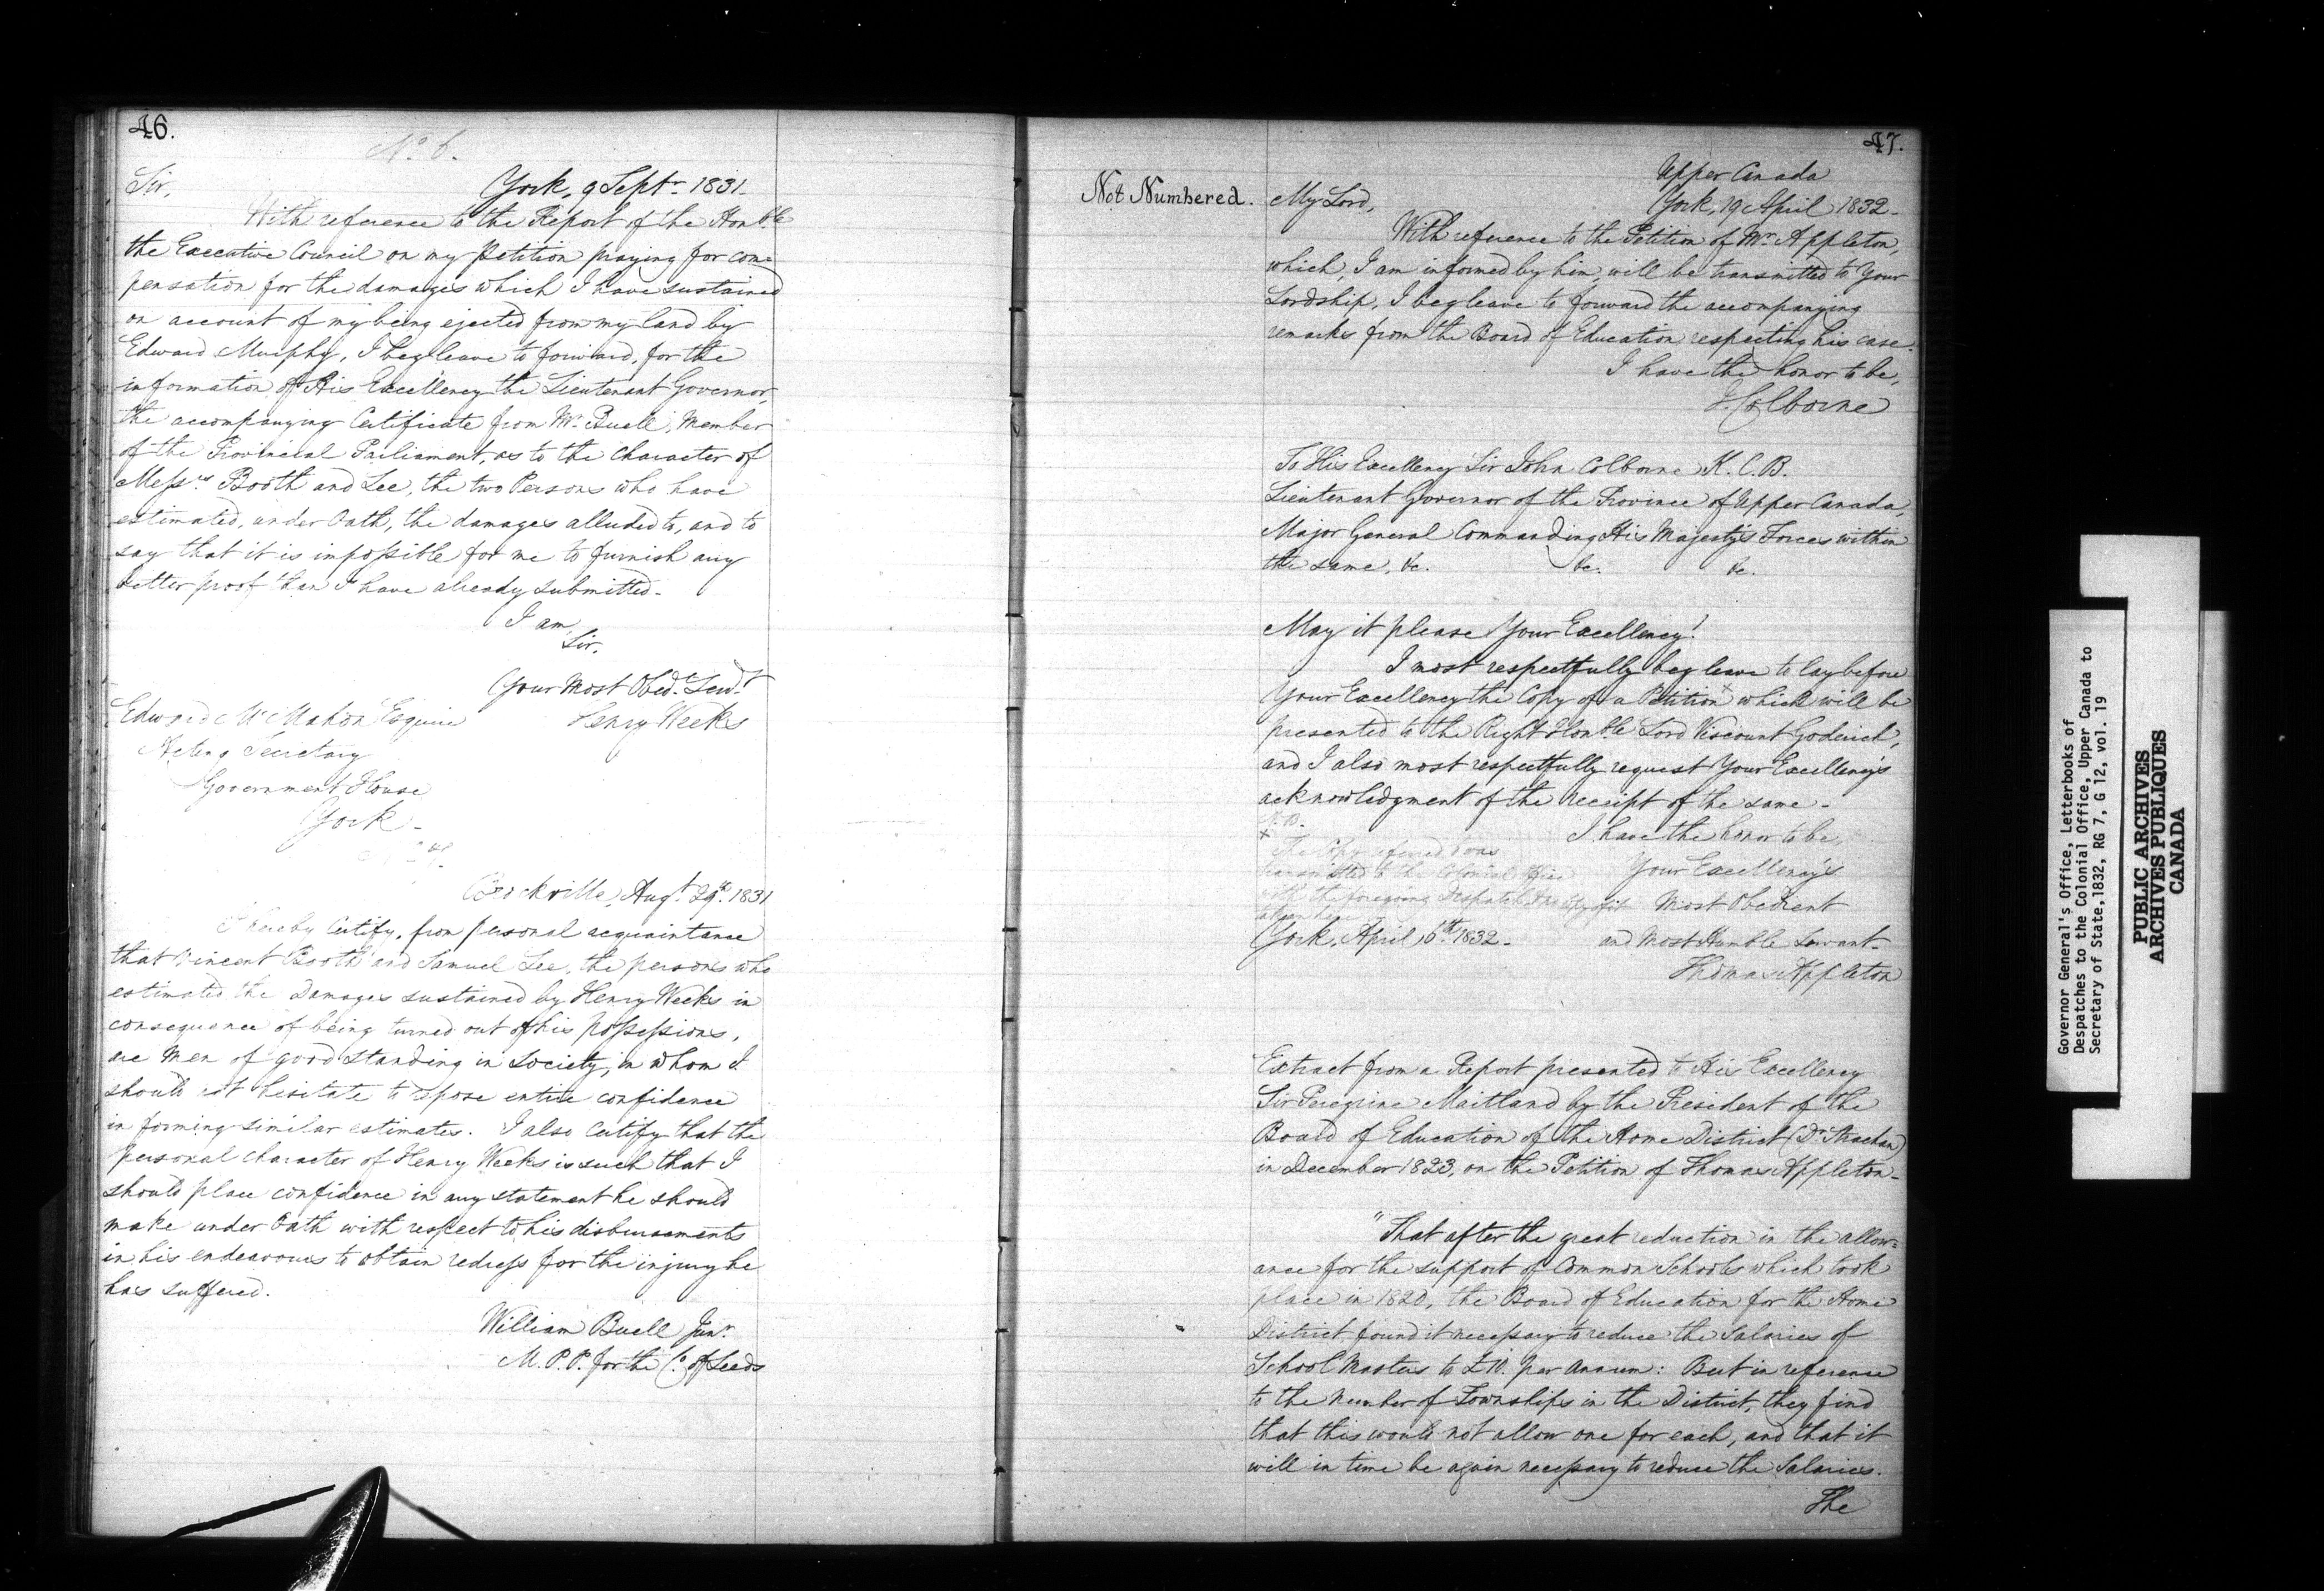 46.
No. 6.
Sir, York, 9 Septr. 1831.
With reference to the Report of the Honble
the Executive Council on my Petition praying for com=
pensation for the damages which I have sustained
on account of my being ejected from my land by
Edward Murphy, I beg leave to forward, for the
information of His Excellency the Lieutenant Governor,
the accompanying Certificate from Mr. Buell, Member
of the Provincial Parliament, as to the character of
Messrs Booth and Lee, the two Persons who have
estimated, under Oath, the damages alluded to, and to
say that it is impossible for me to furnish any
better proof than I have already submitted.
I am,
Sir,
Your Most Obedt. Servt.
Edward McMahon Esquire Henry Weeks
Acting Secretary
Government House
York.
Brockville, Augt. 29th. 1831
I hereby Certify, from personal acquaintance
that Vincent Booth and Samuel Lee, the persons who
estimated the Damages sustained by Henry Weeks in
consequence of being turned out of his possessions,
are Men of good standing in Society, in whom I
should not hesitate to repose entire confidence
in forming similar estimates. I also Certify that the
personal character of Henry Weeks is such that I
should place confidence in any statement he should
make under Oath with respect to his disbursements
in his endeavours to obtain redress for the injury he
has suffered.
William Buell Junr.
M.P.P. for the Co. of Leeds
47.
Upper Canada
Not Numbered. My Lord, York, 19 April 1832.
With reference to the Petition of Mr. Appleton,
which, I am informed by him, will be transmitted to Your
Lordship, I beg leave to forward the accompanying
remarks from the Board of Education respecting his case.
I have the honor to be,
J. Colborne
To His Excellency Sir John Colborne K.C.B.
Lieutenant Governor of the Province of Upper Canada,
Major General Commanding His Majesty's Forces within
the same, &c. &c. &c.
May it please Your Excellency!
I most respectfully beg leave to lay before
Your Excellency the Copy of a Petition x which will be
presented to the Right Honble. Lord Viscount Goderich,
and I also most respectfully request Your Excellency's
acknowledgment of the receipt of the same.
N.B.
x I have the honor to be,
The Copy referred to was
transmitted to the Colonial Office Your Excellency's
with the foregoing Despatch, & no Copy of it Most Obedient
taken here
York, April 16th. 1832. and Most Humble Servant.
Thomas Appleton
Extract from a Report presented to His Excellency
Sir Peregrine Maitland by the President of the
Board of Education of the Home District (Dr. Strachan)
in December 1823, on the Petition of Thomas Appleton.
"That after the great reduction in the allow=
ance for the support of Common Schools which took
place in 1820, the Board of Education for the Home
District found it necessary to reduce the Salaries of
School Masters to £10. per Annum: But in reference
to the Number of Townships in the District, they find
that this would not allow one for each, and that it
will in time be again necessary to reduce the Salaries.
The
Governor General's Office, Letterbooks of
Despatches to the Colonial Office, Upper Canada to
Secretary of State, 1832, RG 7, G 12, vol. 19
PUBLIC ARCHIVES
ARCHIVES PUBLIQUES
CANADA